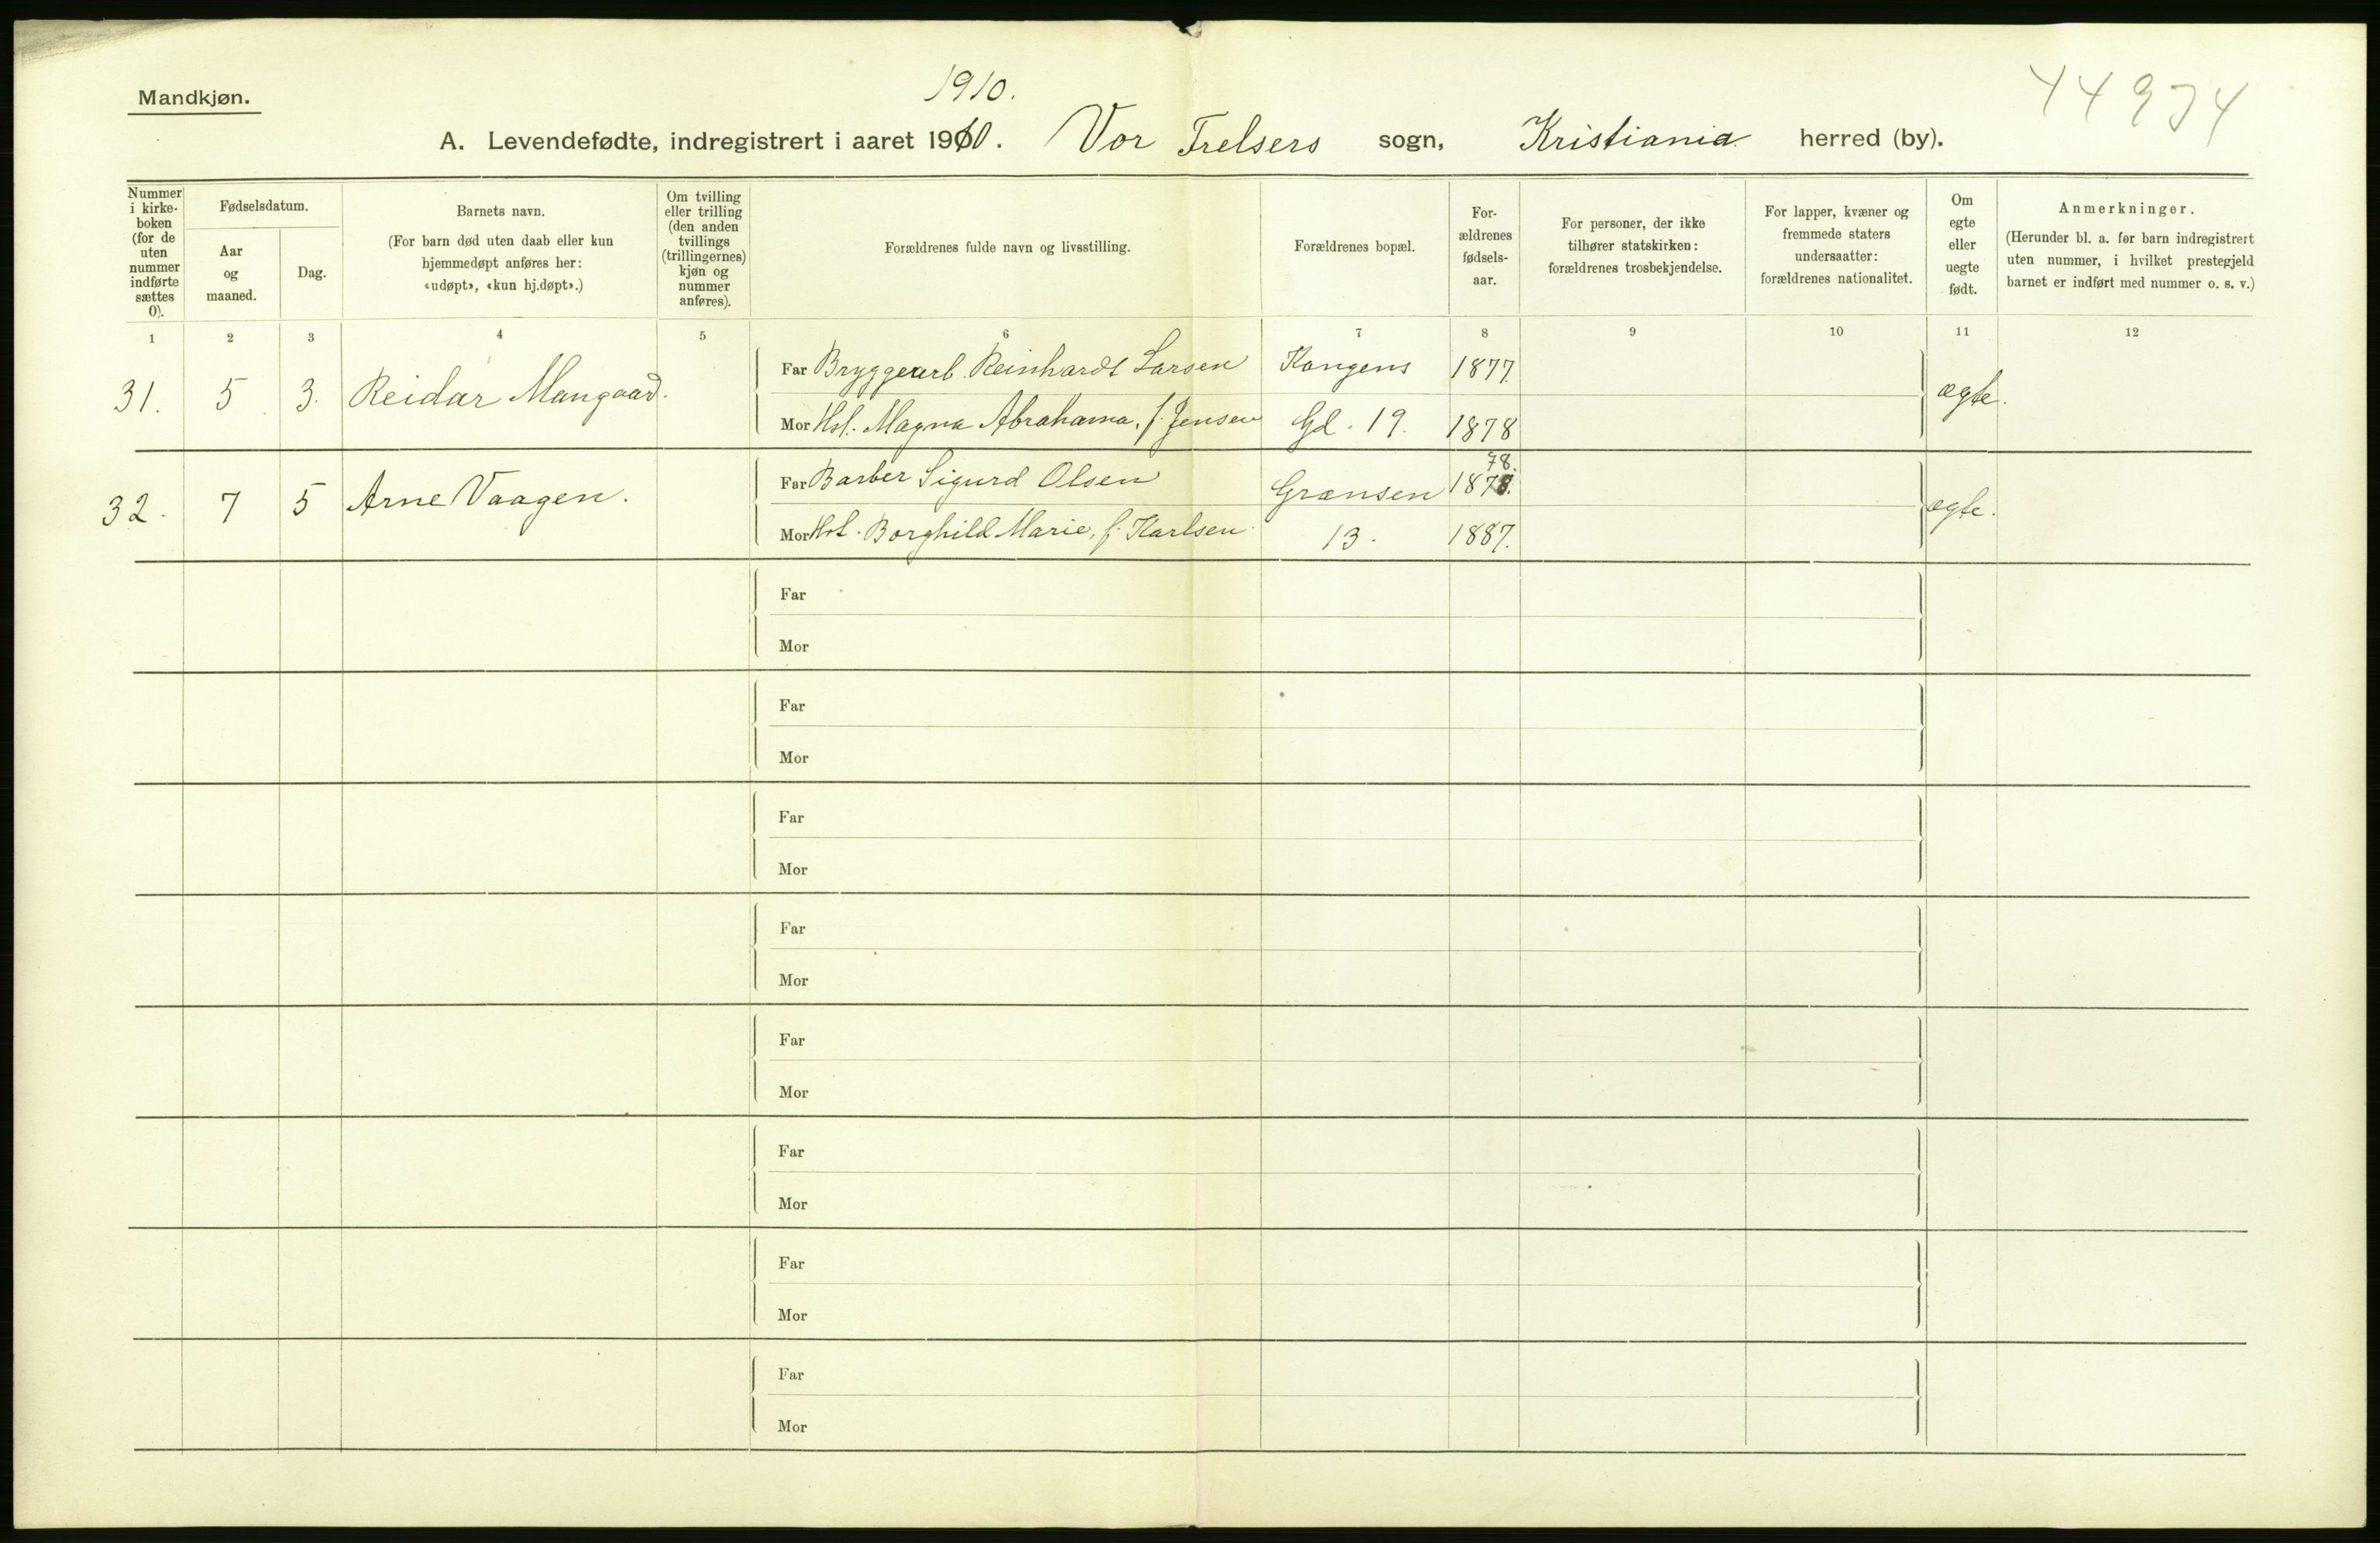 1910.
44974
Mandkjøn.
A. Levendefødte, indregistrert i aaret 1910. Vor Frelsers sogn, Kristiania herred (by).
Nummer i kirkeboken (for de uten nummer indførte sættes 0).
Fødselsdatum.
Aar og maaned.
Dag.
Barnets navn.
(For barn død uten daab eller kun hjemmedøpt anføres her: «udøpt», «kun hj.døpt».)
Om tvilling eller trilling (den anden tvillings (trillingernes) kjøn og nummer anføres).
Forældrenes fulde navn og livsstilling.
Forældrenes bopæl.
For-ældrenes fødsels-aar.
For personer, der ikke tilhører statskirken: forældrenes trosbekjendelse.
For lapper, kvæner og fremmede staters undersaatter: forældrenes nationalitet.
Om egte eller uegte født.
Anmerkninger.
(Herunder bl. a. for barn indregistrert uten nummer, i hvilket prestegjeld barnet er indført med nummer o. s. v.)
1 2 3 4 5 6 7 8 9 10 11 12
31. 5 3. Reidar Mangaard. Far Bryggearb. Reinhardt Larsen Kongens 1877. ægte.
Mor Hst. Magna Abrahama, f. Jensen Gd. 19. 1878
78.
32. 7 5 Arne Vaagen. Far Barber Sigurd Olsen Grænsen 1878. ægte.
Mor Hst. Borghild Marie, f. Karlsen 13. 1887.
Far
Mor
Far
Mor
Far
Mor
Far
Mor
Far
Mor
Far
Mor
Far
Mor
Far
Mor